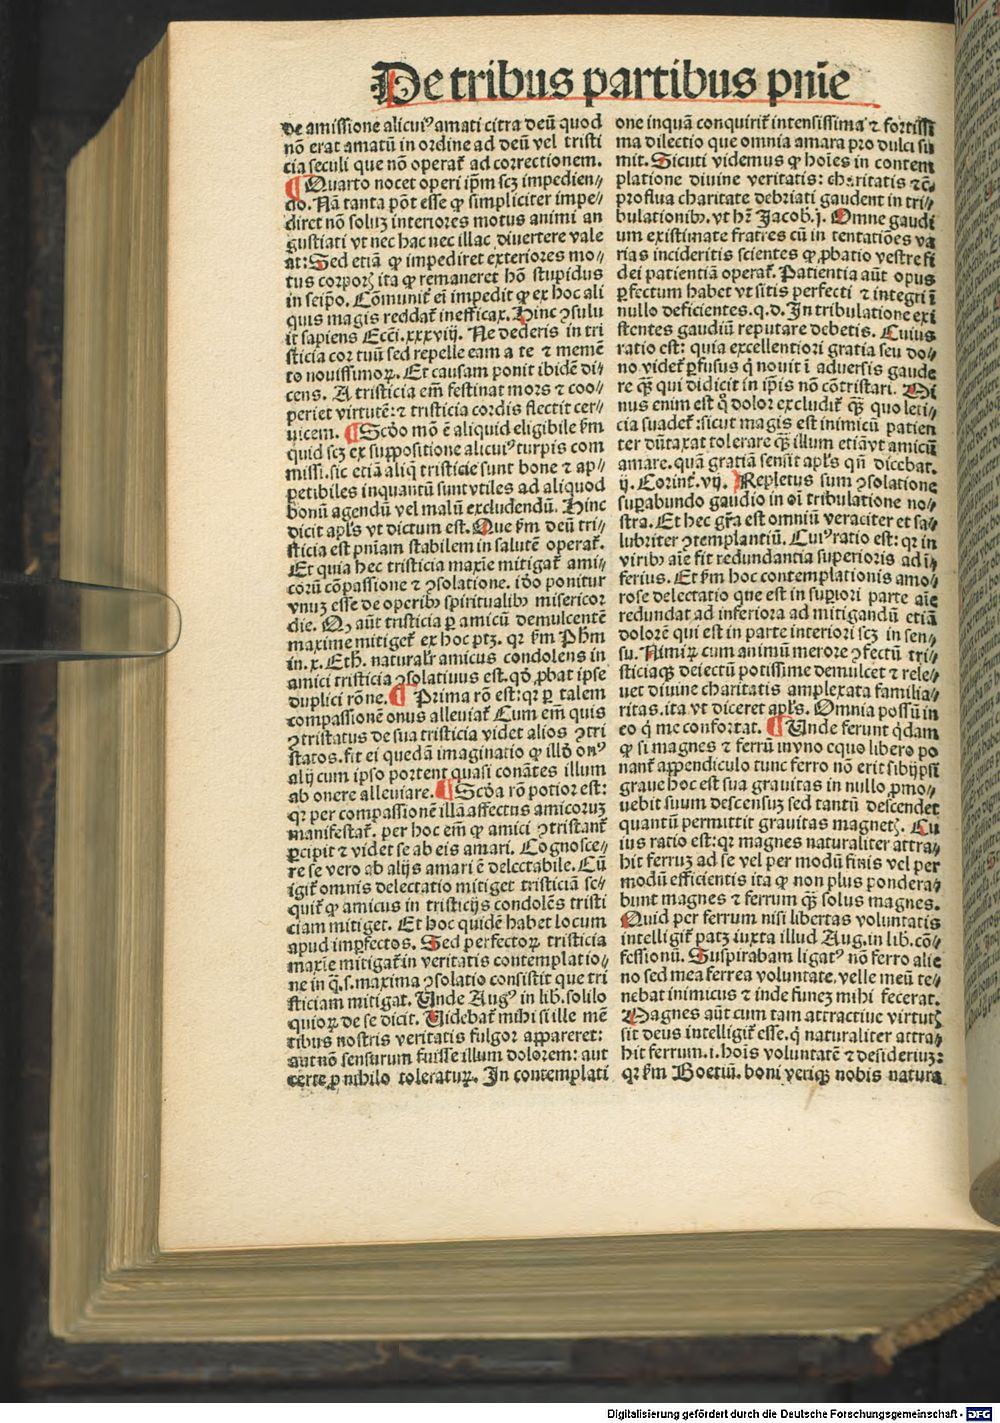 De tribus partibus pnīe
de amissione alicuiꝰ amati citra deū quod
nō erat amatū in ordine ad deū vel tristi
cia seculi que nō operat᷑ ad correctionem.
¶ Quarto nocet operi ip̄m scꝫ impedien⸗
do. Nā tanta pōt esse ꝙ simpliciter impe⸗
diret nō soluꝫ interiores motus animi an
gustiati vt nec hac nec illac diuertere vale
at: Sed etiā ꝙ impediret exteriores mo⸗
tus corporꝝ ita ꝙ remaneret hō stupidus
in seip̄o. Cōmunit᷑ ei impedit ꝙ ex hoc ali
quis magis reddat᷑ inefficax. Hinc ꝯsulu
it sapiens Ecci. xxxviij. Ne dederis in tri
sticia cor tuū sed repelle eam a te ⁊ memē
to nouissimoꝝ. Et causam ponit ibidē di⸗
cens. A tristicia em̄ festinat mors ⁊ coo⸗
periet virtutē: ⁊ tristicia cordis flectit cer⸗
uicem. ¶ Scd̄o mō ē aliquid eligibile ẜm
quid scꝫ ex suppositione alicuiꝰ turpis com
missi. sic etiā aliq̄ tristicie sunt bone ⁊ ap⸗
petibiles inquantū sunt vtiles ad aliquod
bonū agendū vel malū excludendū. Hinc
dicit apl̄s vt dictum est. Que ẜm deū tri⸗
sticia est pniam stabilem in salutē operat᷑.
Et quia hec tristicia maxīe mitigat᷑ ami⸗
corū cōpassione ⁊ ꝯsolatione. iō ponitur
vnuꝫ esse de operibꝰ spiritualibꝰ misericor
die. Qꝫ aūt tristicia ꝑ amicū demulcentē
maxime mitiget᷑ ex hoc ptꝫ. qꝛ ẜm Ph̄m
in. x. Eth. naturalr̄ amicus condolens in
amici tristicia ꝯsolatiuus est. qd̄ ꝓbat ipse
duplici rōne. ¶ Prima rō est: qꝛ ꝑ talem
compassionē onus alleuiat᷑ Cum em̄ quis
ꝯtristatus de sua tristicia videt alios ꝯtri
statos. fit ei quedā imaginatio ꝙ illd̄ onꝰ
alij cum ipso portent quasi conātes illum
ab onere alleuiare. ¶ Scd̄a rō potior est:
qꝛ per compassionē illā affectus amicoruꝫ
manifestat᷑. per hoc em̄ ꝙ amici ꝯtristant᷑
ꝑcipit ⁊ videt se ab eis amari. Cognosce⸗
re se vero ab alijs amari ē delectabile. Cū
igit᷑ omnis delectatio mitiget tristiciā se⸗
quit᷑ ꝙ amicus in tristicijs condolēs tristi
ciam mitiget. Et hoc quidē habet locum
apud imꝑfectos. Sed perfectoꝝ tristicia
maxīe mitigat᷑ in veritatis contemplatio⸗
ne in q̄. s. maxima ꝯsolatio consistit que tri
sticiam mitigat. Unde Augꝰ in lib. solilo
quioꝝ de se dicit. Videbat᷑ mihi si ille mē
tibus nostris veritatis fulgor appareret:
aut nō sensurum fuisse illum dolorem: aut
certe ꝓ nihilo toleraturꝫ. In contemplati
one inquā conquirit᷑ intensissima ⁊ fortissi
ma dilectio que omnia amara pro dulci su
mit. Sicuti videmus ꝙ hoīes in contem
platione diuine veritatis: charitatis ⁊c̄.
proflua charitate debriati gaudent in tri⸗
bulationibꝰ. vt hr̄ Jacob. j. Omne gaudi
um existimate fratres cū in tentatiōes va
rias incideritis scientes ꝙ ꝓbatio vestre fi
dei patientiā operat᷑. Patientia aūt opus
ꝑfectum habet vt sitis perfecti ⁊ integri ī
nullo deficientes. q. d. In tribulatione exi
stentes gaudiū reputare debetis. Cuius
ratio est: quia excellentiori gratia seu do⸗
no videt᷑ ꝑfusus q̇ nouit ī aduersis gaude
re qꝫ̄ qui didicit in ip̄is nō cōtristari. Mi
nus enim est q̇ dolor excludit᷑ qꝫ̄ quo leti⸗
cia suadet᷑: sicut magis est inimicū patien
ter dūtaxat tolerare qꝫ̄ illum etiā vt amicū
amare. quā gratiā sensit apl̄s qn̄ dicebat.
ij. Corint᷑. vij. Repletus sum ꝯsolatione
suꝑabundo gaudio in oī tribulatione no⸗
stra. Et hec gr̄a est omniū veraciter et sa⸗
lubriter ꝯtemplantiū. Cuiꝰ ratio est: qꝛ in
viribꝰ aīe fit redundantia superioris ad ī⸗
ferius. Et ẜm hoc contemplationis amo⸗
rose delectatio que est in suꝑiori parte aīe
redundat ad inferiora ad mitigandū etiā
dolorē qui est in parte interiori scꝫ in sen⸗
su. Nimiꝝ cum animū merore ꝯfectū tri⸗
sticiaqꝫ deiectū potissime demulcet ⁊ rele⸗
uet diuine charitatis amplexata familia⸗
ritas. ita vt diceret apl̄s. Omnia possū in
eo q̇ me confortat. ¶ Unde ferunt q̇dam
ꝙ si magnes ⁊ ferrū in vno equo libero po
nant᷑ appendiculo tunc ferro nō erit sibijpsi
graue hoc est sua grauitas in nullo ꝓmo⸗
uebit suum descensuꝫ sed tantū descendet
quantū permittit grauitas magnetꝭ. Cu
ius ratio est: qꝛ magnes naturaliter attra⸗
hit ferruꝫ ad se vel per modū finis vel per
modū efficientis ita ꝙ non plus pondera⸗
bunt magnes ⁊ ferrum qꝫ̄ solus magnes.
Quid per ferrum nisi libertas voluntatis
intelligit᷑ patꝫ iuxta illud Aug. in lib. cō⸗
fessionū. Suspirabam ligatꝰ nō ferro alie
no sed mea ferrea voluntate. velle meū te⸗
nebat inimicus ⁊ inde funeꝫ mihi fecerat.
Magnes aūt cum tam attractiue virtutꝭ
sit deus intelligit᷑ esse. q̇ naturaliter attra⸗
hit ferrum. i. hoīs voluntatē ⁊ desideriuꝫ:
qꝛ ẜm Boetiū. boni veriqꝫ nobis natura
Digitalisierung gefördert durch die Deutsche Forschungsgemeinschaft - DFG